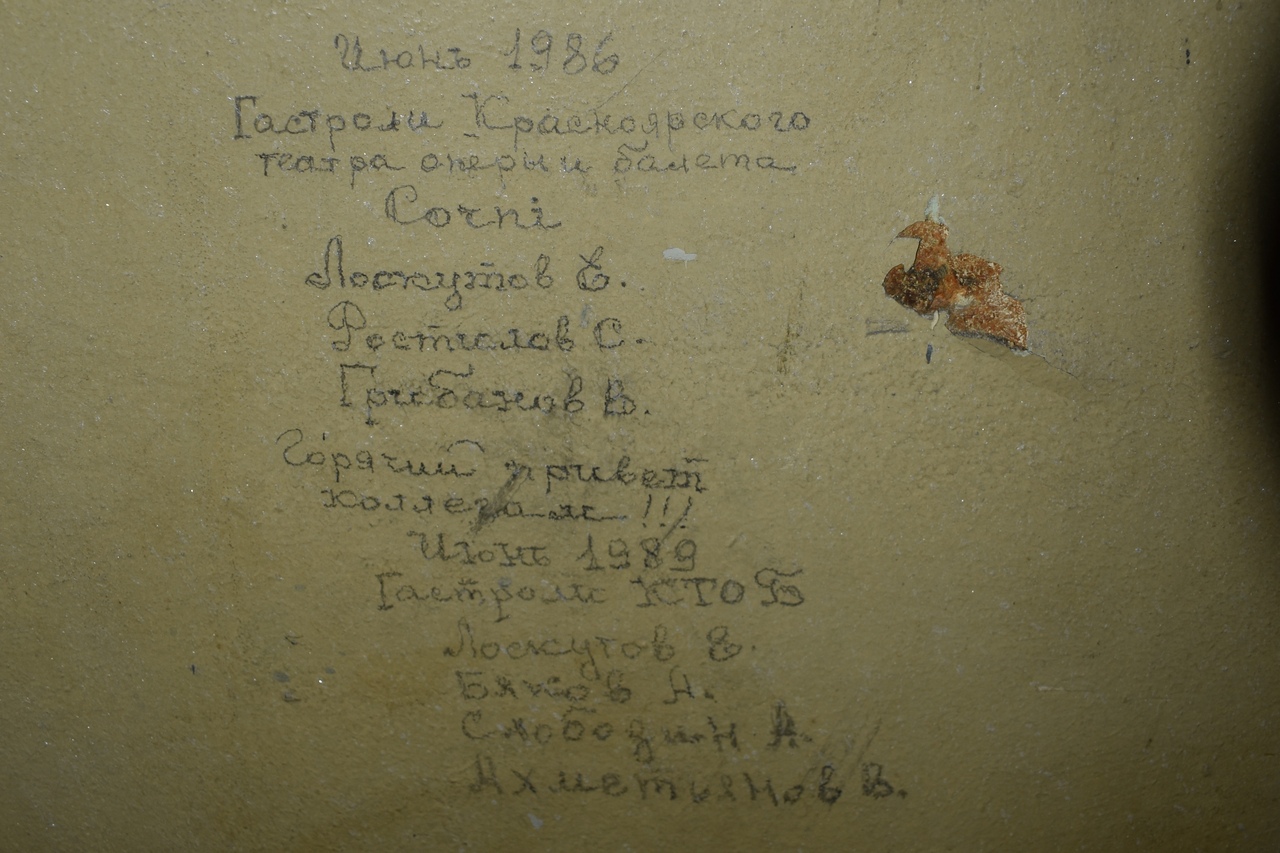 Июнь 1986
Гастроли Красноярского
театра оперы и балета
Corni
Лоскутов Е.
Ростиалов С.
Грибанов В.
Горячий привет
коллегам!!!
Июнь 1989
Гастроли КТОБ
Лоскутов Е.
А.
Слободин А.
Ахметьянов В.